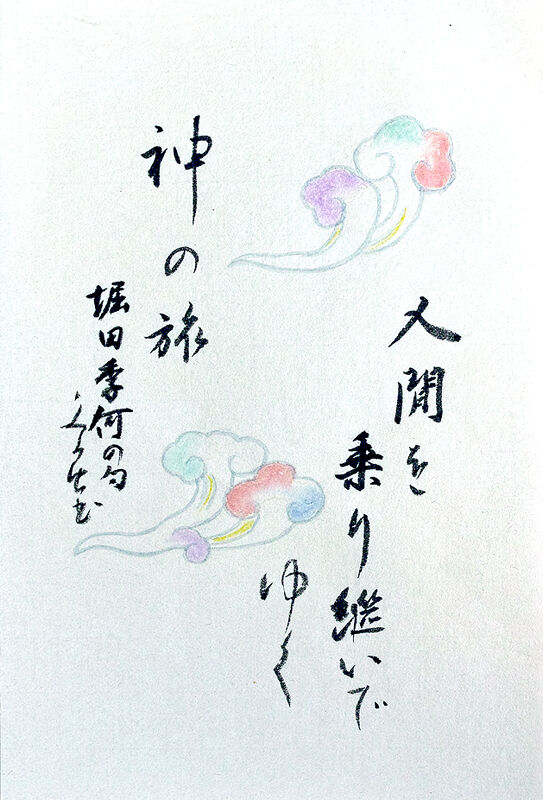 人間を
乗り継いで
ゆく
神の旅
堀田季何の句